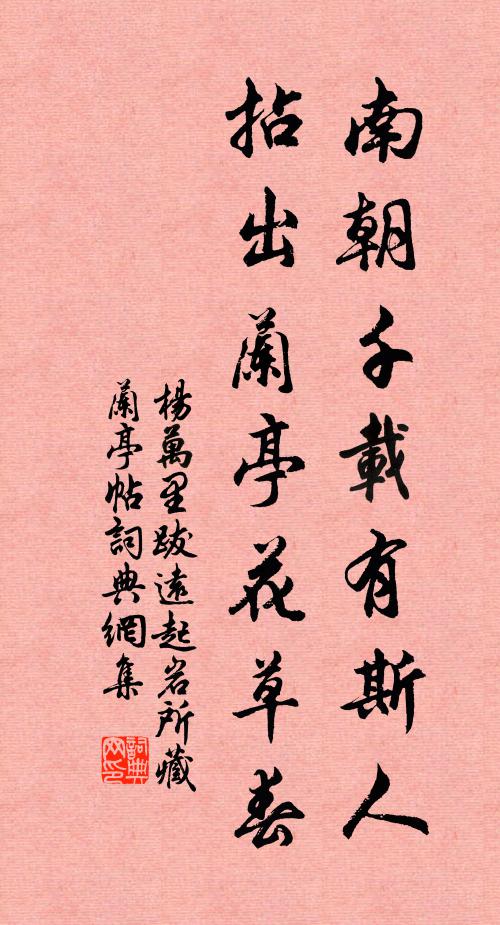 南朝千載有斯人
拈出蘭亭花草春
楊萬里跋遠起岩所藏
蘭亭帖詞典網集
詞典网印